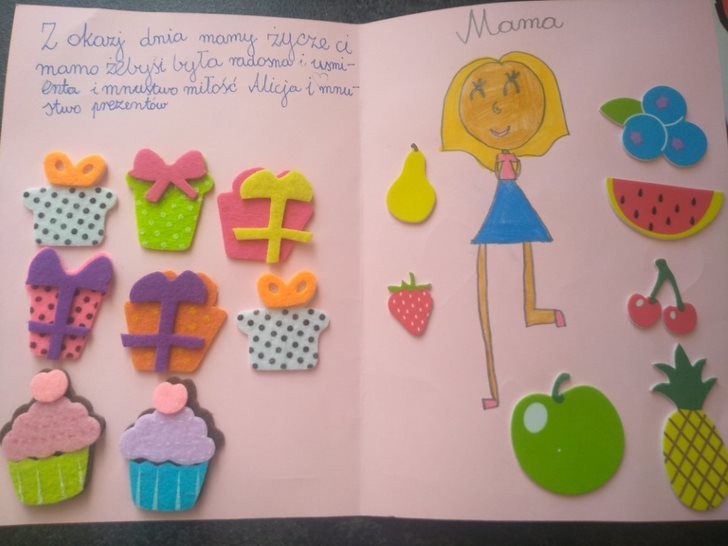 Z okazj dnia mamy życze ci
mamo żebyśi była radosna i uśmi-
enta i mnustwo miłość Alicja i mnu-
stwo prezentów
Mama